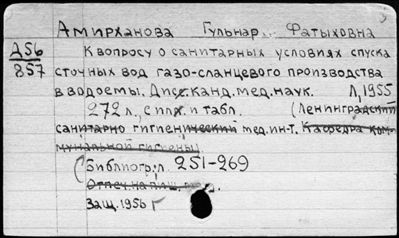 Амирханова Гульнар Фатыховна
А56
857
К вопросу о санитарных условиях спуска
сточных вод газо-сланцевого производства
в водоемы. Дисс. канд. мед. наук. Л, 1955
272 л., с илл. и табл. (Ленинградский
санитарно гигиенический мед. ин-т. Кафедра ком-
мунальной гигиены)
(Библиогр: л. 251-269
Отпеч. на пиш.
Защ. 1956 г